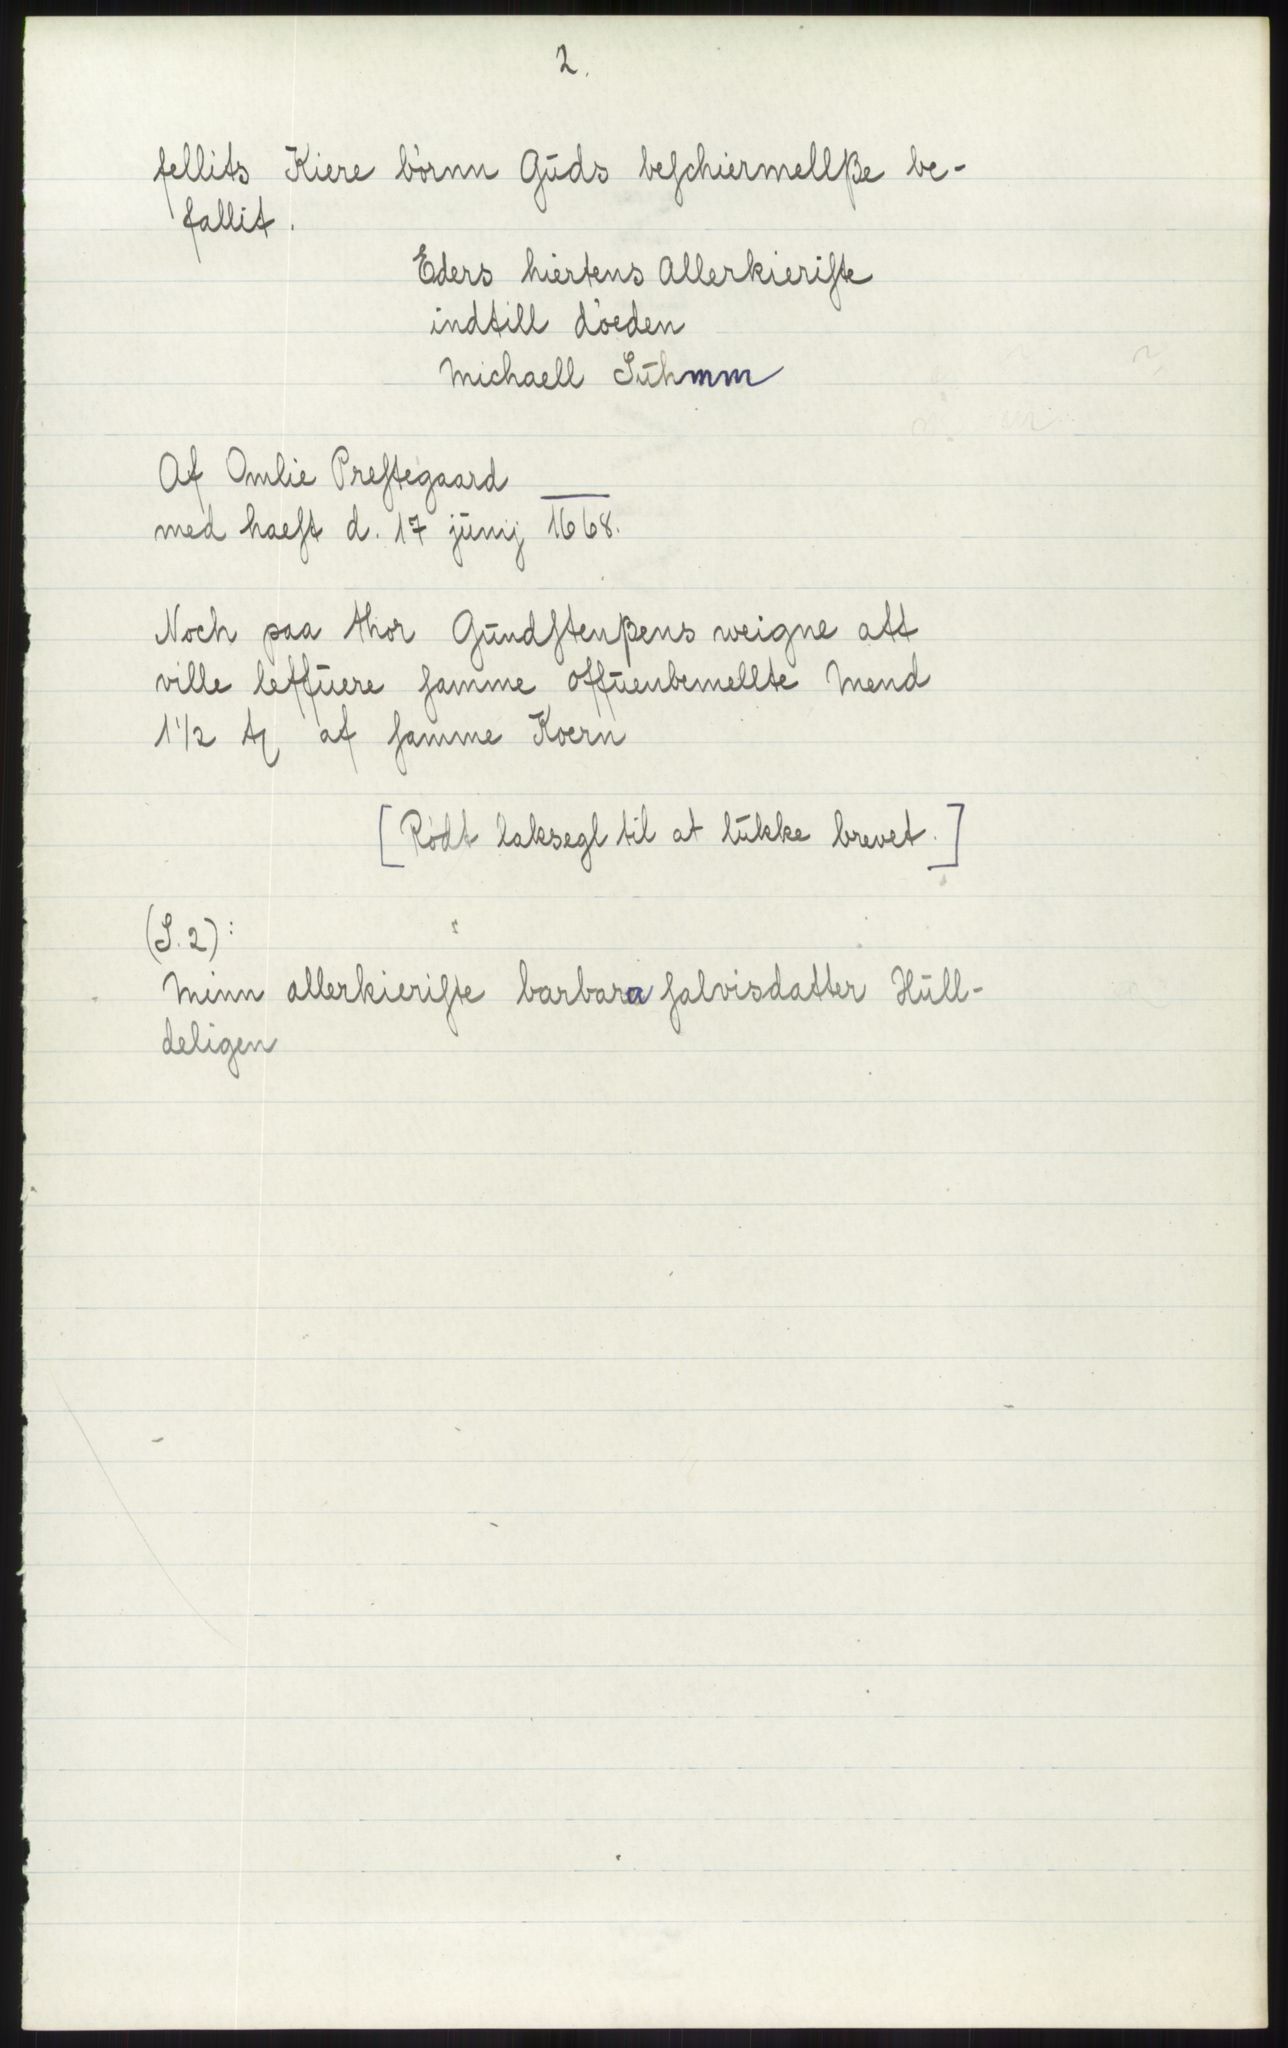 2.
fellits Kiere börnn Gūds beſchiermellße be-
fallit.
Eders hiertens Allerkieriſte
indtill döeden
Michaell Sūhmm
Af Omlie Preſtegaard
med haeſt d. 17 jūnij 1668.
Noch paa thor Gūndſtenßens weigne att
ville leffūere ſamme offūenbemellte Mend
1 1/2 tꝭ af ſamme Koern
[Rødt laksegl til at lūkke brevet.]
(S. 2):
Minn allerkieriſte barbara ſalvisdatter Hūll-
deligen